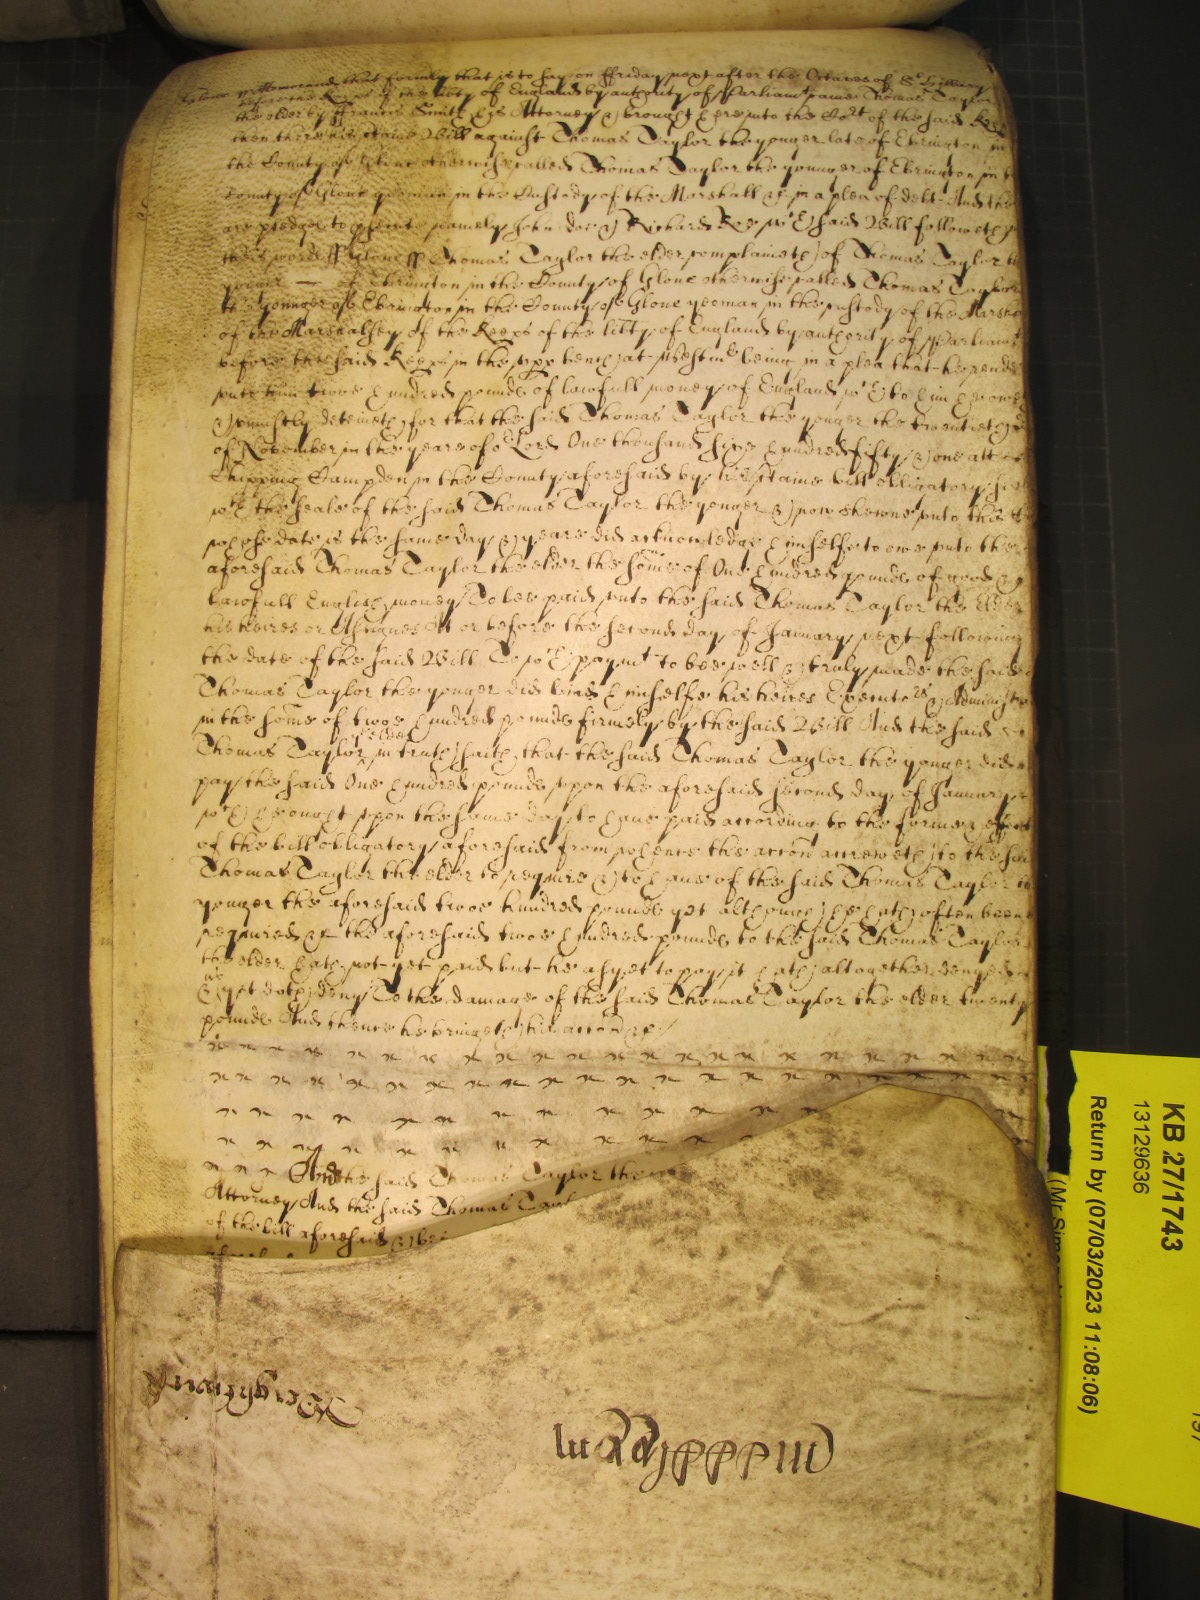 Glouc ss Memorand that formerly that is to say on ffriday next after the Octaves of St Hillary
before the Keeps of the libty of England by authority of Parliamt came Thomas Taylor
the elder by ffrancis Smith his Attorney & brought here into the Cort of the said Keeps
then there his ctaine Bill against Thomas Taylor the younger late of Ebrington in
the County of Glouc otherwise called Thomas Taylor the younger of Ebrington in the
County of Glouc yeoman in the Custody of the Marshall &c in a plea of debt And there
are pledges to psecute namely John doe & Richard Roe wch said Bill followeth in
these words ss Glouc ss Thomas Taylor the elder complaineth of Thomas Taylor the
younger of Ebrington in the County of Glouc otherwise called Thomas Taylor
the younger of Ebrington in the County of Glouc yeoman in the custody of the Marshall
of the Marshalsey of the Keeps of the libty of England by authority of Parliamt
before the said Keeps in the upp bench at Westmr being in a plea that he render
unto him twoe hundred pounds of lawfull money of England wch to him he oweth
& uniustly deteineth for that the said Thomas Taylor the younger the twentieth day
of November in the yeare of or Lord One thousand sixe hundred fifty & one att
Chipping Campden in the County aforesaid by his ctaine bill obligatory sealed
wth the seale of the said Thomas Taylor the younger & now shewne unto the
whose date is the same day & yeare did acknowledge himselfe to owe unto the
aforesaid Thomas Taylor the elder the some of One hundred pounds of good &
lawfull English money To bee paid unto the said Thomas Taylor the Elder
his heires or Assignes At or before the second day of January next following
the date of the said Bill To wch paymt to bee well & truly made the said
Thomas Taylor the younger did bind himselfe his heires Executors & Administrators
in the some of twoe hundred pounds firmely by the said Bill And the said
Thomas Taylor the elder in truth saith that the said Thomas Taylor the younger did not
pay the said One hundred pounds upon the aforesaid second day of January
wch he ought upon the same day to haue paid according to the forme & effect
of the bill obligatory aforesaid from whence the accon accreweth to the said
Thomas Taylor the elder to require & to haue of the said Thomas Taylor the
younger the aforesaid twoe hundred pounds yet although he hath often been
required &c the aforesaid twoe hundred pounds to the said Thomas Taylor
the elder hath not yet paid but he as yet to pay it hath altogether denyed
& as yet doth deny To the damage of the said Thomas Taylor the elder twenty
pounds And thence he bringeth his accon &c
And the said Thomas Taylor the
Attorney And the said Thomas Tayl
of the bill aforesaid & bei
KB 27/1743
13129636
Return by (07/03/2023 11:08:06)